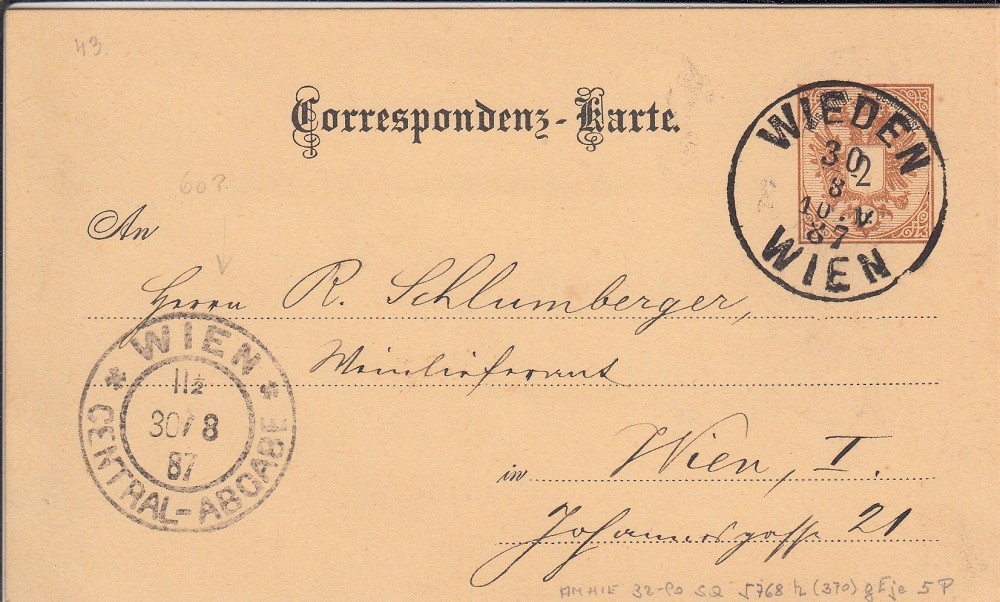 43.
Correspondenz-Karte.
WIEDEN
30
8
2
10.V.
87
WIEN
60?
An
Herrn R. Schlumberger,
Weinlieferant
WIEN
11½
30/8
87
CENTRAL-ABGABE
in Wien, I.
Johannesgasse 21
32-Po SQ 5768 h (370) g E je 5 P